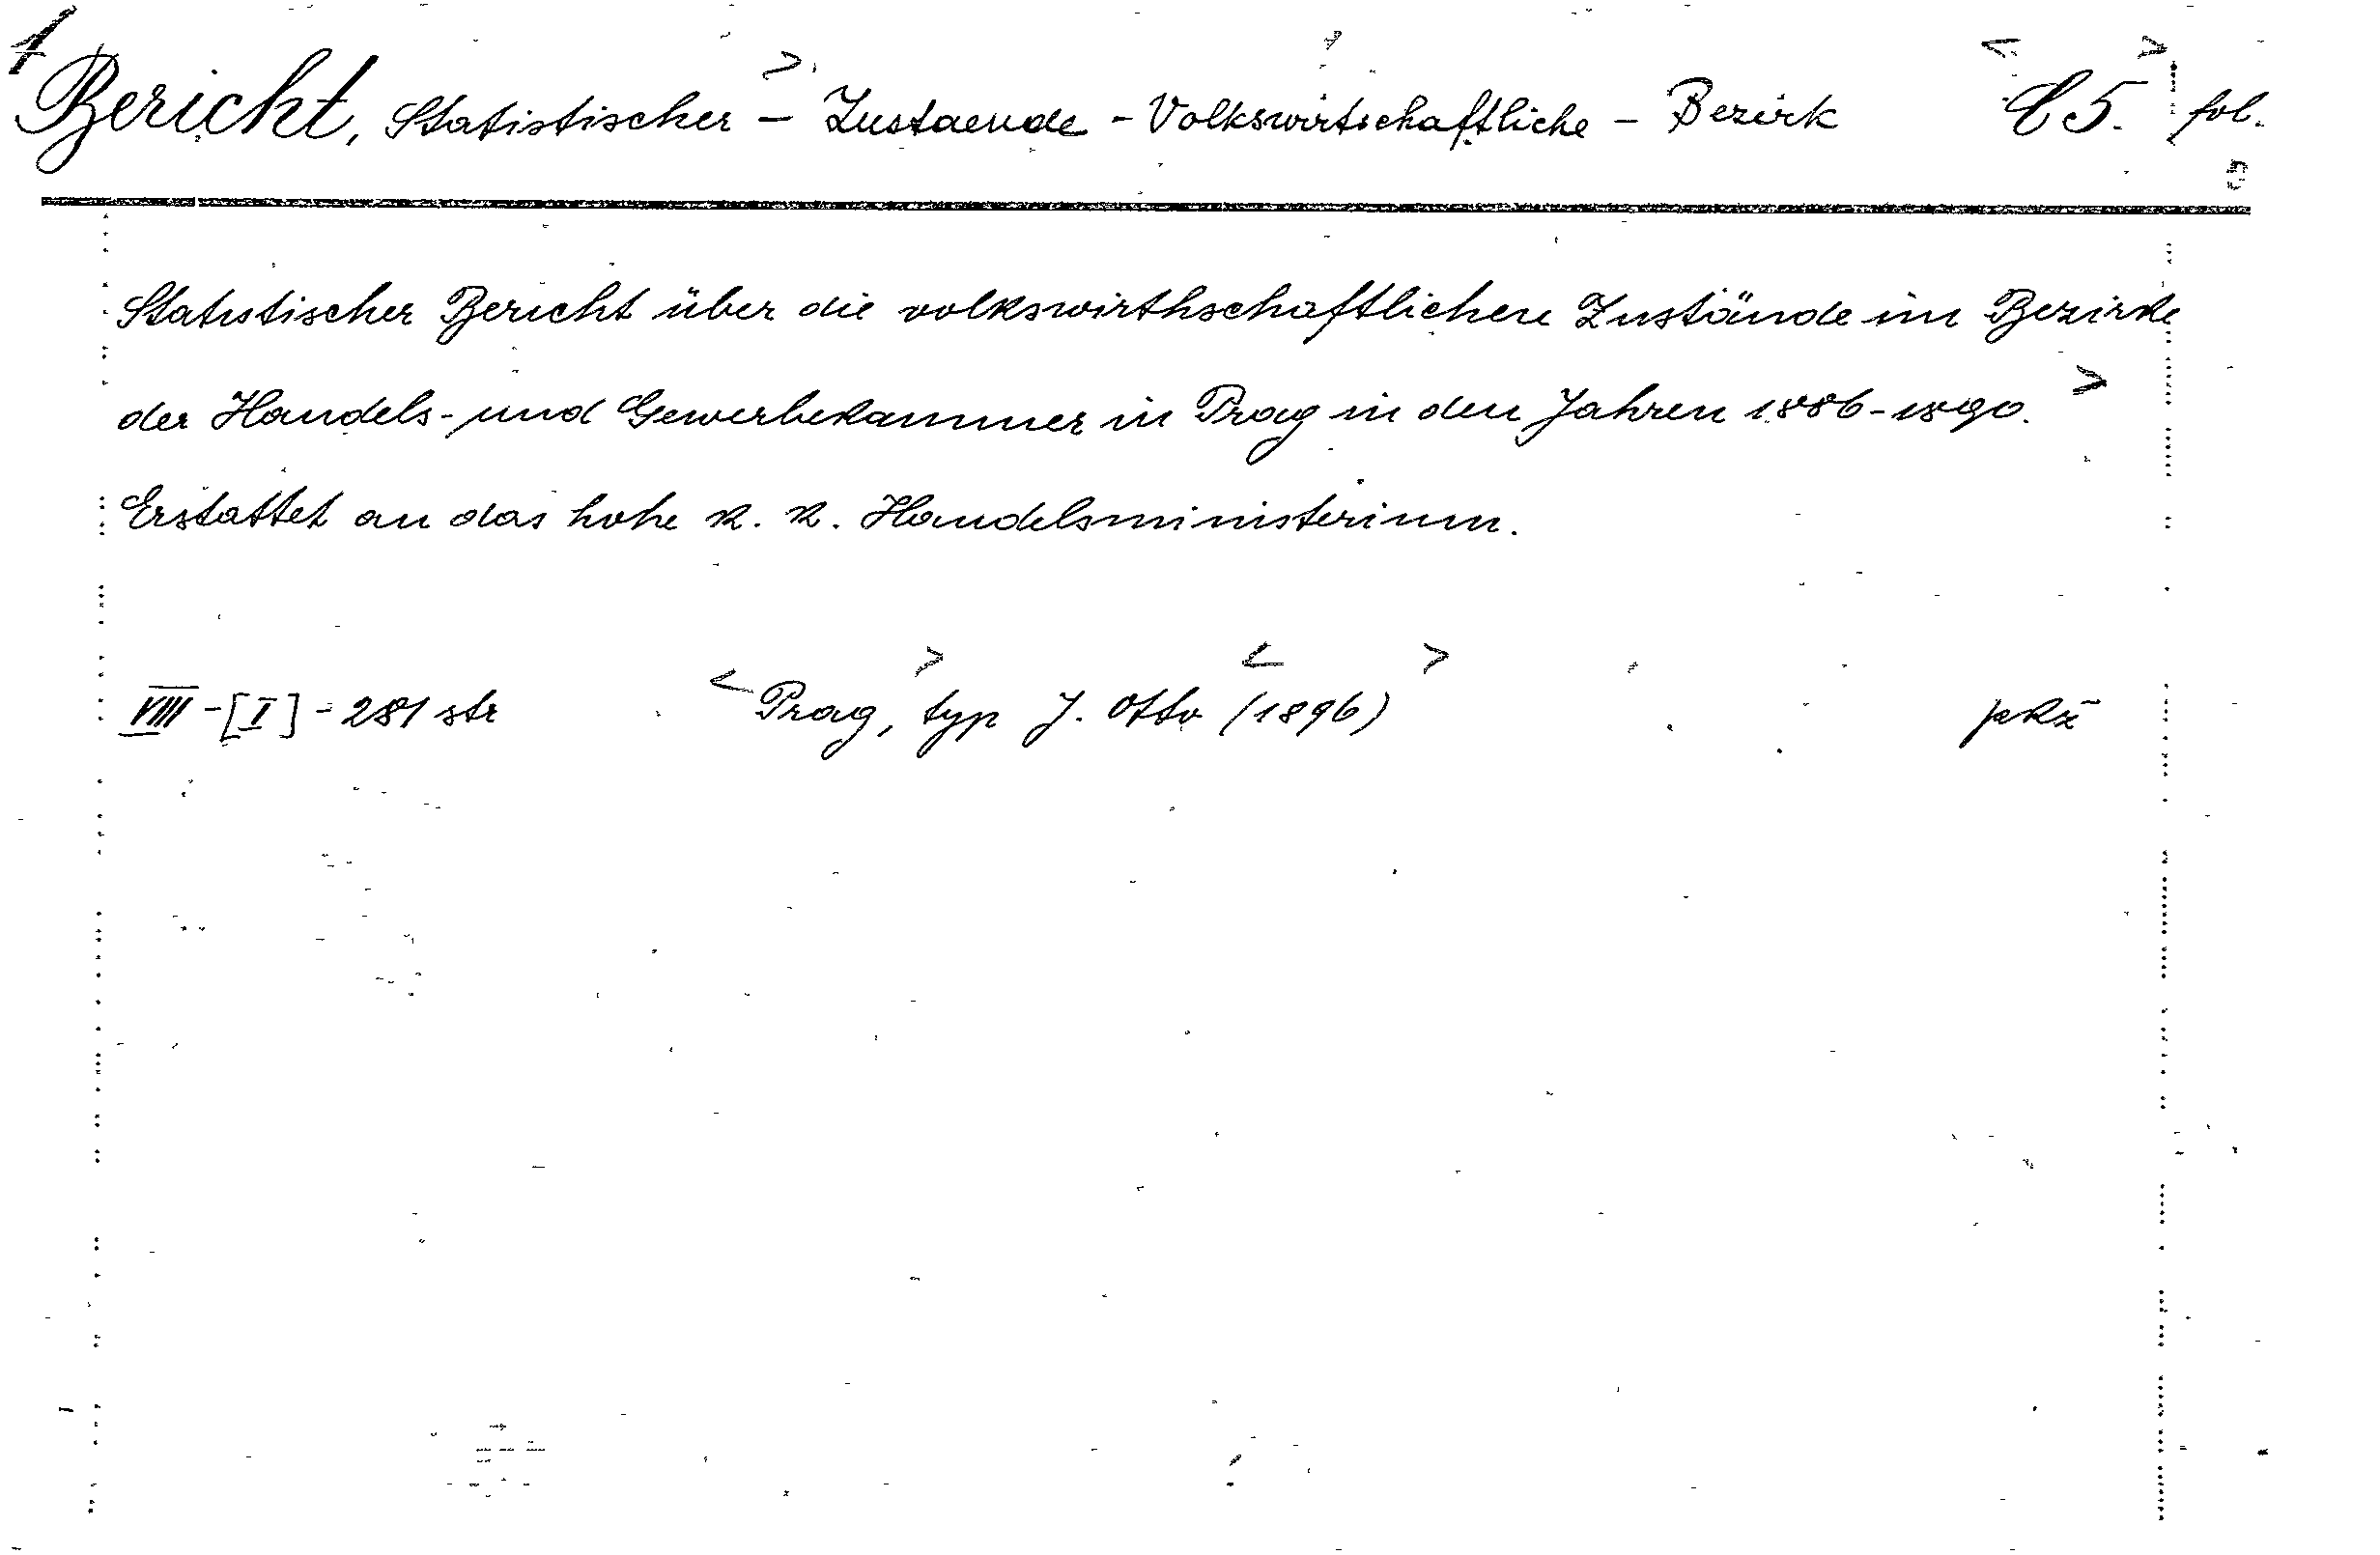 1
Bericht, Statistischer – Zustaende – Volkswirtschaftliche – Bezirk < > fol.
Statistischer Bericht über die volkswirthschaftlichen Zustände im Bezirke
der Handels- und Gewerbekammer in Prag in den Jahren 1886-1890. >
Erstattet an das hohe k. k. Handelsministerium.
VIII - [I] - 281 str < Prag, typ J. Otto (1896) >